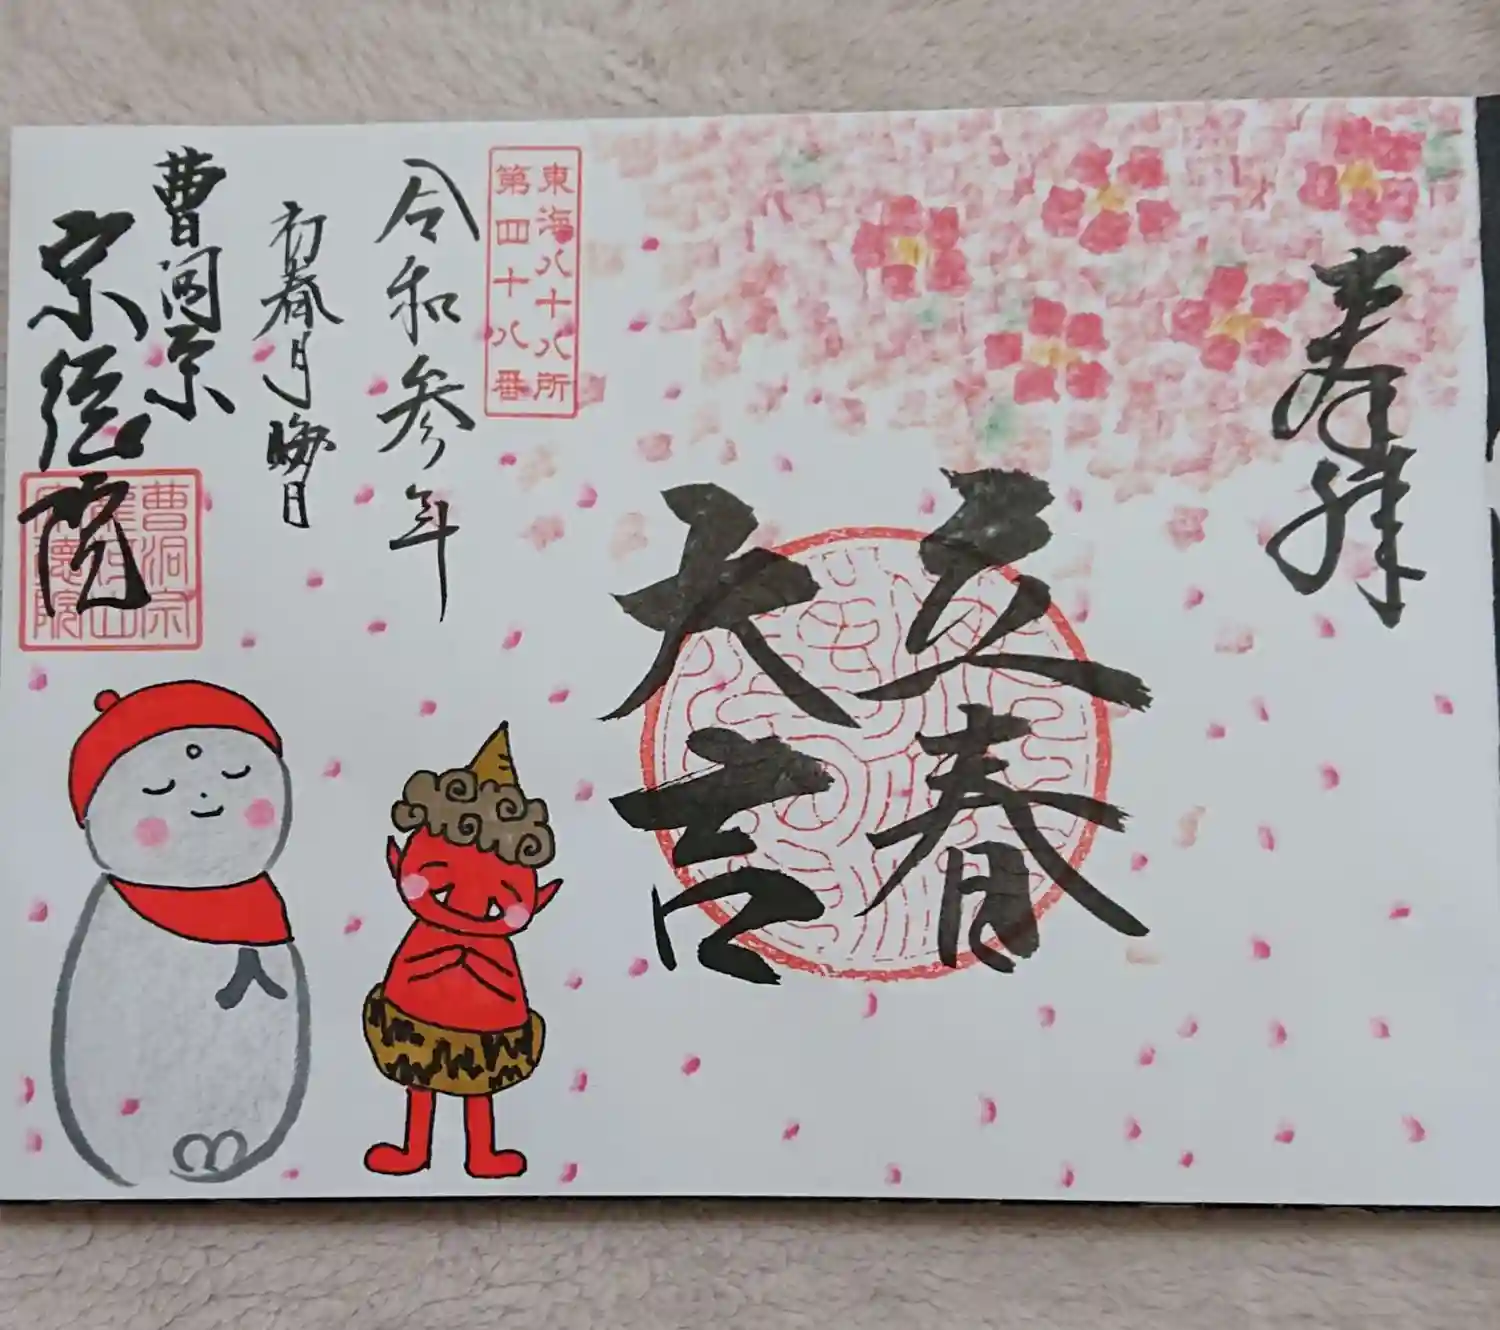 奉拝
立春
大吉
東海八十八所
第四十八番
令和参年
初春月晦日
曹洞宗
宗徳院
曹洞宗
宗徳院